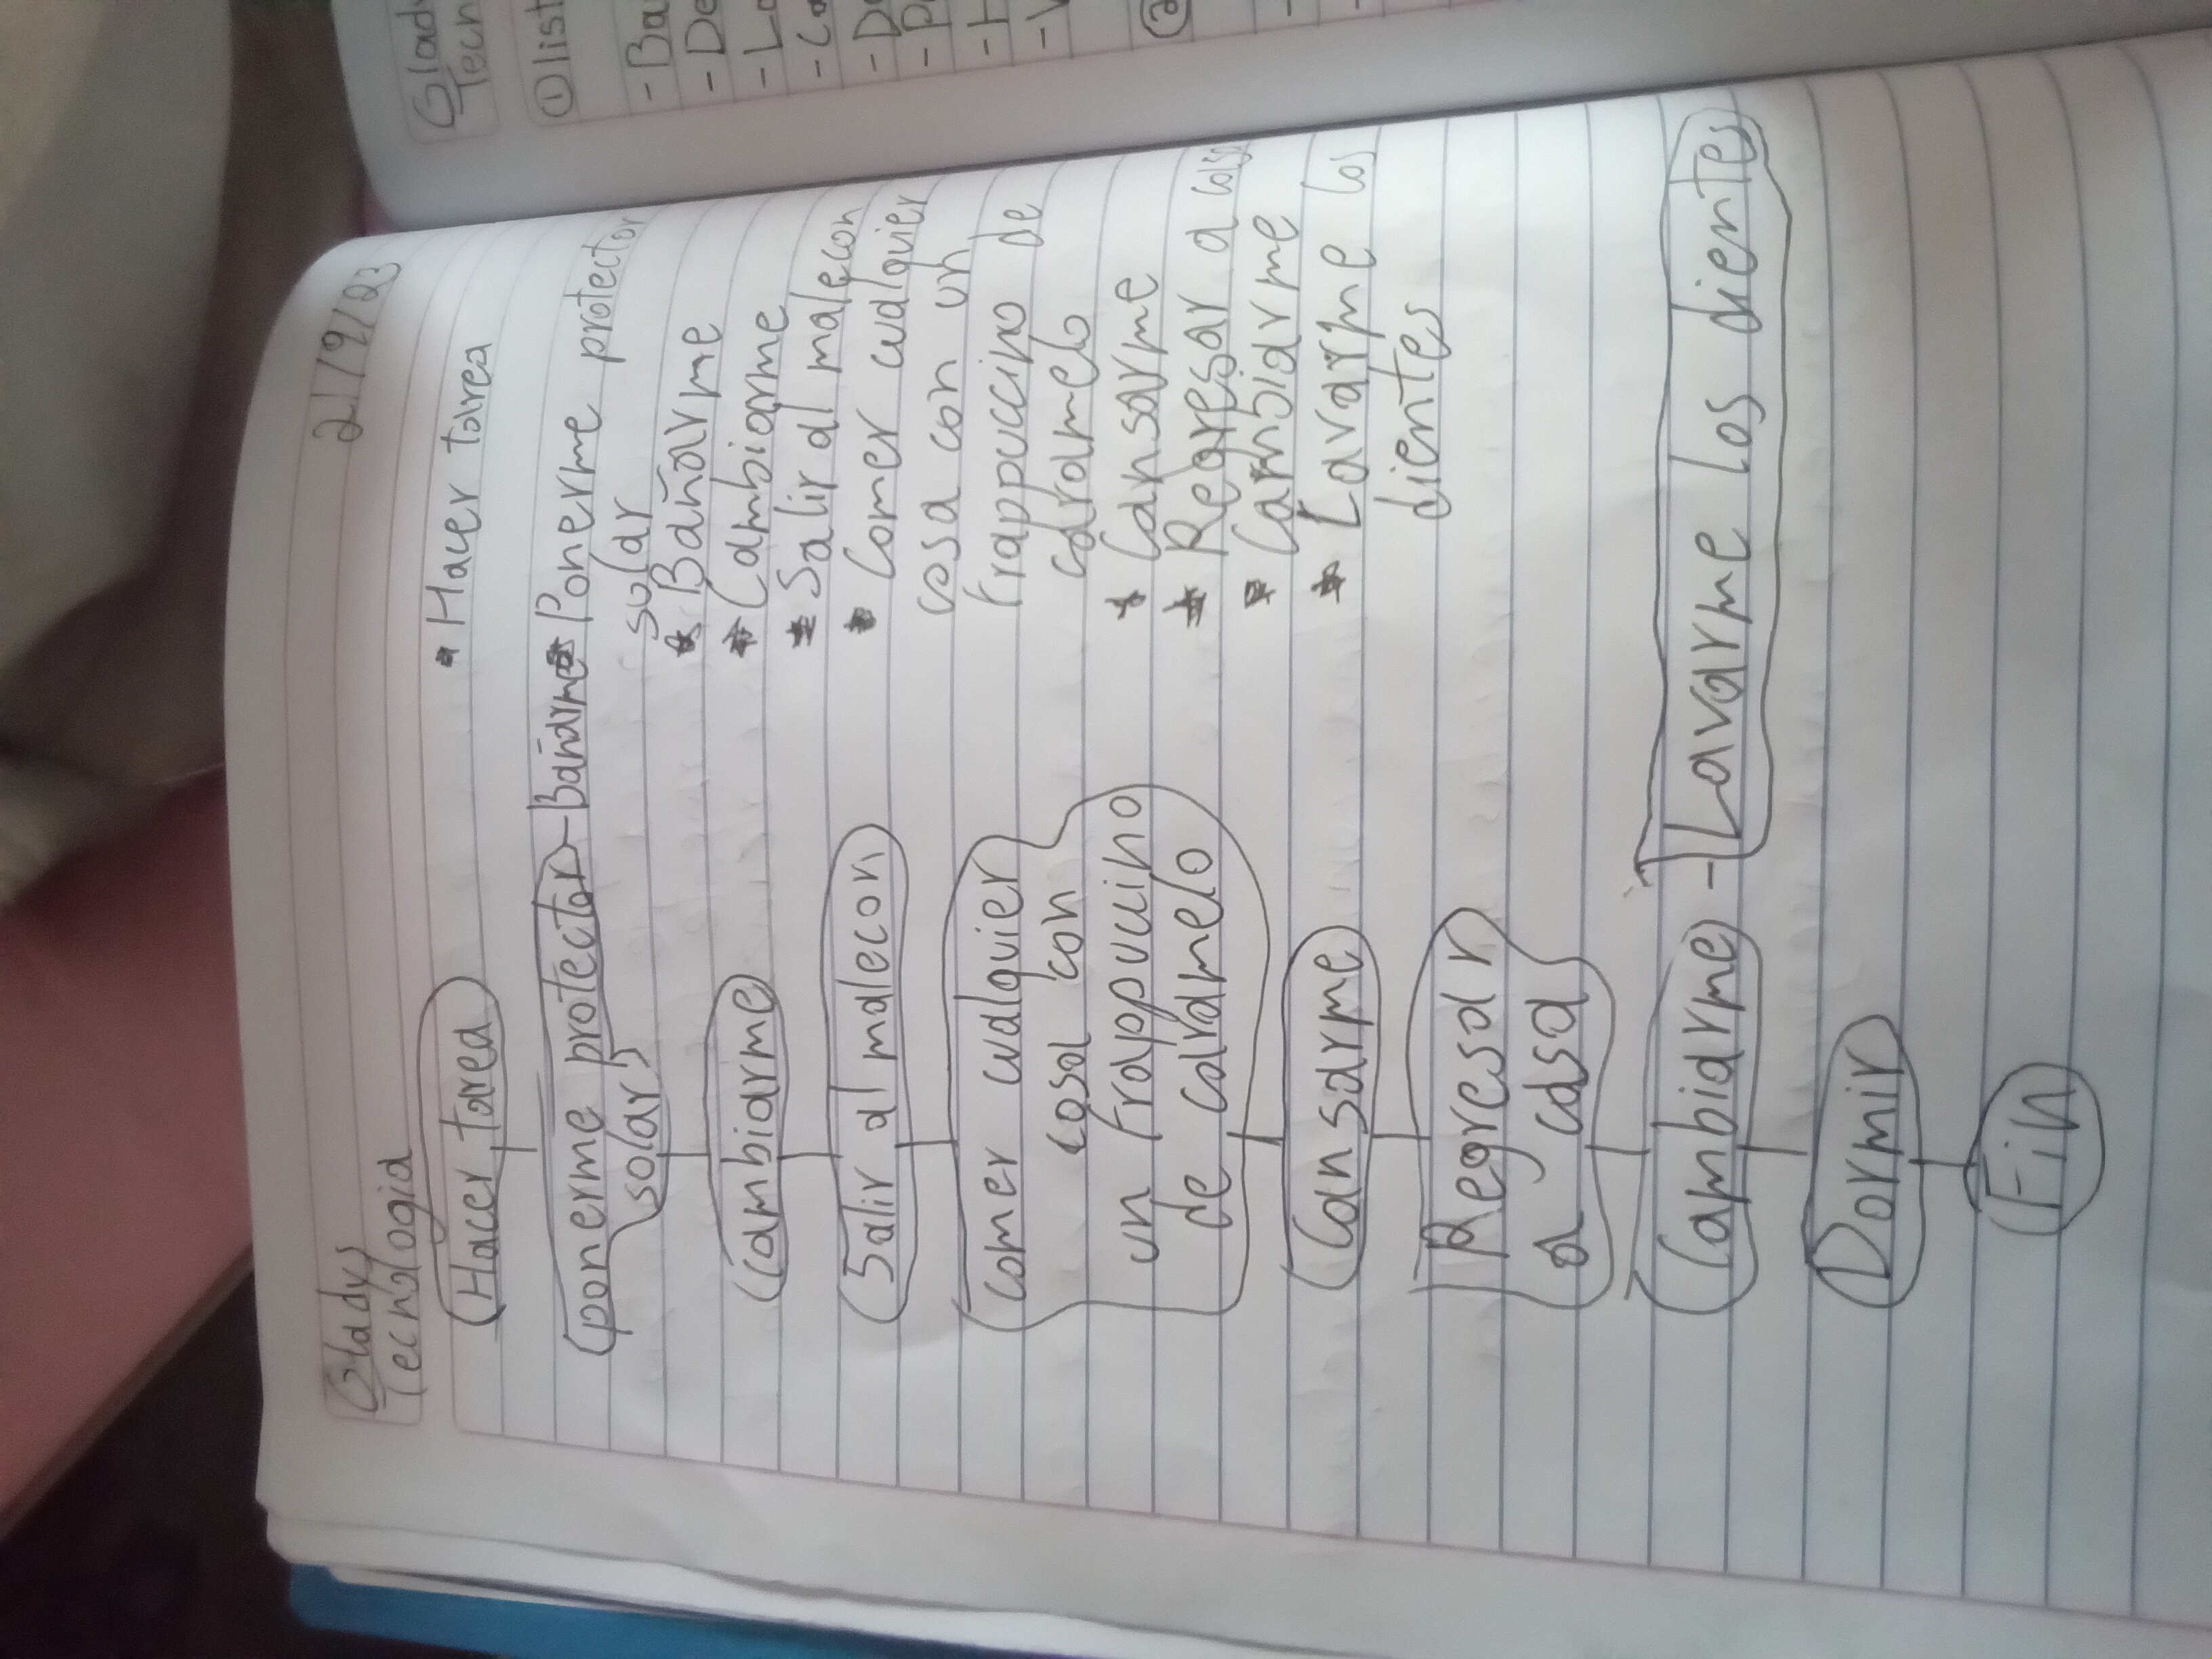 Gladys
Tecnologia
21/9/23
Hacer tarea
ponerme protector - Bañarme
solar
Cambiarme
Salir al malecon
Comer cualquier
cosa con
un frappuccino
de caramelo
Cansarme
Regresar
a casa
Cambiarme - Lavarme los dientes
Dormir
Fin
* Hacer tarea
* Ponerme protector
solar
* Bañarme
* Cambiarme
* Salir al malecon
* Comer cualquier
cosa con un
frappuccino de
caramelo
* Cansarme
* Regresar a casa
* Cambiarme
* Lavarme los
dientes
Glad
Tecn
① list
- Ba
- De
- Lo